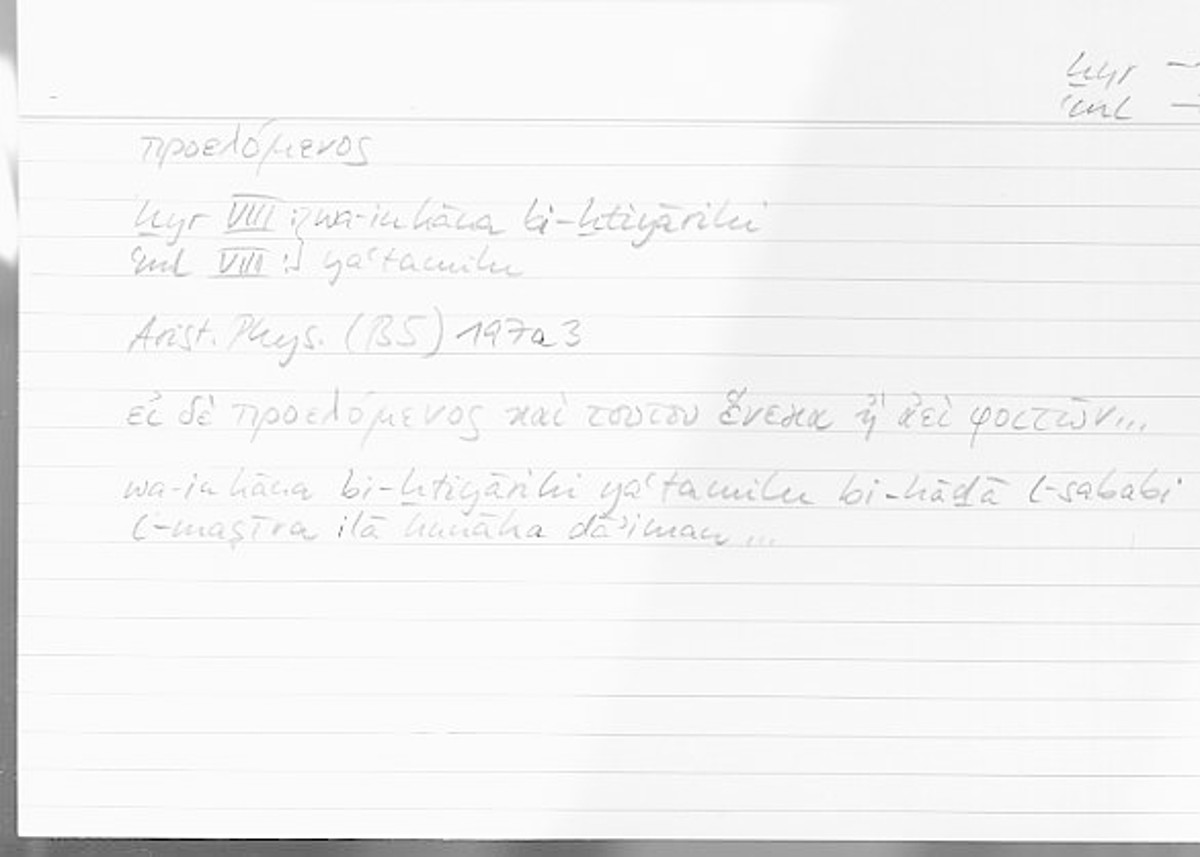 ḫyr →
ʿml →
προελόμενος
ḫyr VIII :} wa-in kāna bi-ḫtiyārihi
ʿml VIII :} yaʿtamilu
Arist. Phys. (B5) 197a3
εἰ δὲ προελόμενος καὶ τούτου ἕνεκα ἢ ἀεὶ φοιτῶν...
wa-in kāna bi-ḫtiyārihi yaʿtamilu bi-hāḏā l-sababi
l-maṣīra ilā hunāka dāʾiman...